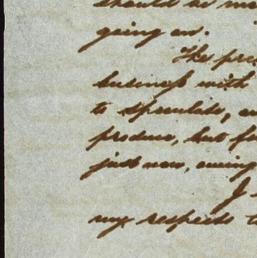 should be ma
going on.
The pre
business with
to speculate, a
produce, but fo
just now, owing
J
my respects to